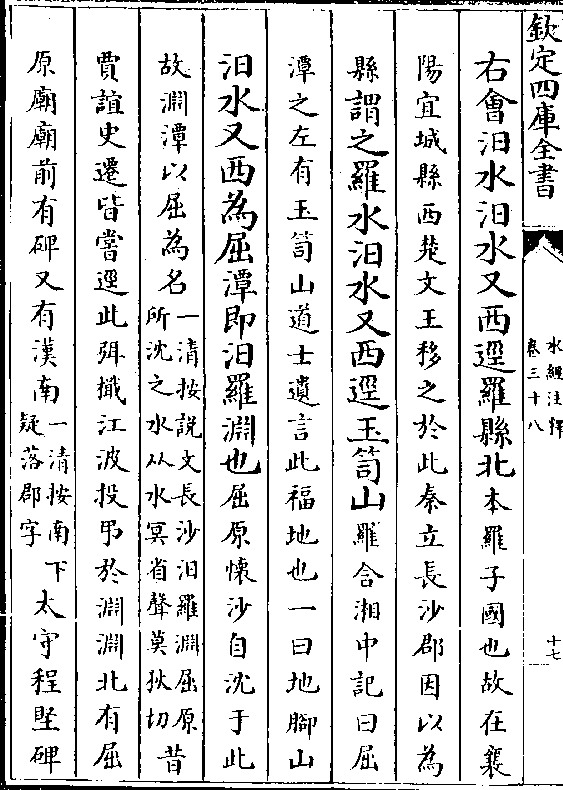 欽定四庫全書
水經注釋
卷三十八
十七
右會汨水汨水又西逕羅縣北本羅子國也故在襄
陽宜城縣西楚文王移之於此秦立長沙郡因以為
縣謂之羅水汨水又西逕玉笥山羅含湘中記曰屈
潭之左有玉笥山道士遺言此福地也一曰地腳山
汨水又西為屈潭即汨羅淵也屈原懷沙自沈于此
故淵潭以屈為名一清按說文長沙汨羅淵屈原所沈之水从水冥省聲莫狄切昔
賈誼史遷皆嘗逕此弭檝江波投弔於淵淵北有屈
原廟廟前有碑又有漢南一清按南下疑落郡字太守程堅碑